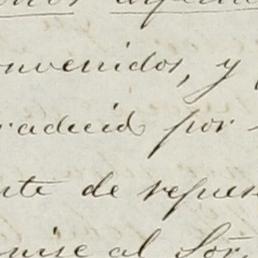 onvenidos, y
raducid por
nte de repres
al Sor.